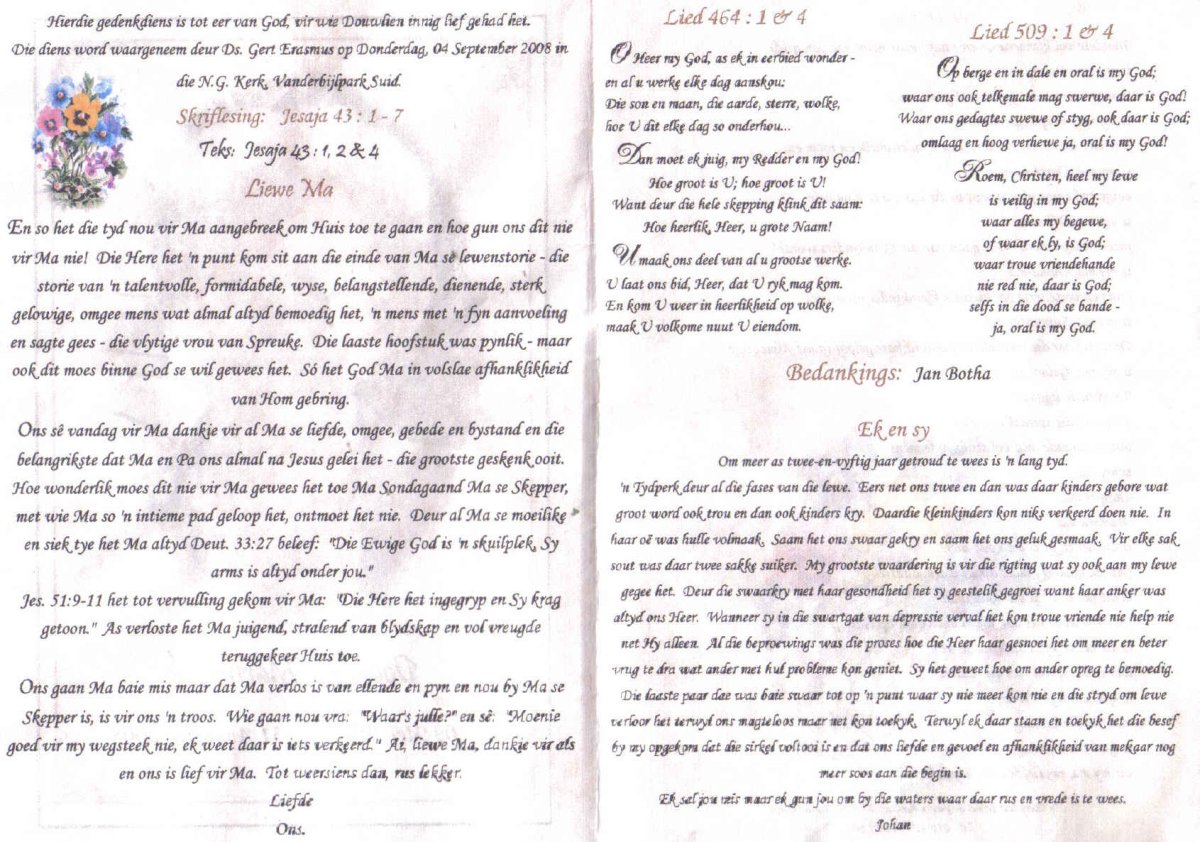 Hierdie gedenkdiens is tot eer van God, vir wie Douwlien innig lief gehad het.
Die diens word waargeneem deur Ds. Gert Erasmus op Donderdag, 04 September 2008 in
die N.G. Kerk, Vanderbijlpark Suid.
Skriflesing: Jesaja 43 : 1 - 7
Teks: Jesaja 43 : 1, 2 & 4
Liewe Ma
En so het die tyd nou vir Ma aangebreek om Huis toe te gaan en hoe gun ons dit nie
vir Ma nie! Die Here het 'n punt kom sit aan die einde van Ma se lewenstorie - die
storie van 'n talentvolle, formidabele, wyse, belangstellende, dienende, sterk
gelowige, omgee mens wat almal altyd bemoedig het, 'n mens met 'n fyn aanvoeling
en sagte gees - die vlytige vrou van Spreuke. Die laaste hoofstuk was pynlik - maar
ook dit moes binne God se wil gewees het. Só het God Ma in volslae afhanklikheid
van Hom gebring.
Ons sê vandag vir Ma dankie vir al Ma se liefde, omgee, gebede en bystand en die
belangrikste dat Ma en Pa ons almal na Jesus gelei het - die grootste geskenk ooit.
Hoe wonderlik moes dit nie vir Ma gewees het toe Ma Sondagaand Ma se Skepper,
met wie Ma so 'n intieme pad geloop het, ontmoet het nie. Deur al Ma se moeilike
en siek tye het Ma altyd Deut. 33:27 beleef: "Die Ewige God is 'n skuilplek, Sy
arms is altyd onder jou."
Jes. 51:9-11 het tot vervulling gekom vir Ma: "Die Here het ingegryp en Sy krag
getoon." As verloste het Ma juigend, stralend van blydskap en vol vreugde
teruggekeer Huis toe.
Ons gaan Ma baie mis maar dat Ma verlos is van ellende en pyn en nou by Ma se
Skepper is, is vir ons 'n troos. Wie gaan nou vra: "Waar's julle?" en sê: "Moenie
goed vir my wegsteek nie, ek weet daar is iets verkeerd." Ai, liewe Ma, dankie vir als
en ons is lief vir Ma. Tot weersiens dan, rus lekker.
Liefde
Ons.
Lied 464 : 1 & 4
O Heer my God, as ek in eerbied wonder -
en al u werke elke dag aanskou:
Die son en maan, die aarde, sterre, wolke,
hoe U dit elke dag so onderhou...
Dan moet ek juig, my Redder en my God!
Hoe groot is U; hoe groot is U!
Want deur die hele skepping klink dit saam:
Hoe heerlik, Heer, u grote Naam!
U maak ons deel van al u grootse werke.
U laat ons bid, Heer, dat U ryk mag kom.
En kom U weer in heerlikheid op wolke,
maak U volkome nuut U eiendom.
Lied 509 : 1 & 4
Op berge en in dale en oral is my God;
waar ons ook telkemale mag swerwe, daar is God!
Waar ons gedagtes swewe of styg, ook daar is God;
omlaag en hoog verhewe ja, oral is my God!
Roem, Christen, heel my lewe
is veilig in my God;
waar alles my begewe,
of waar ek ly, is God;
waar troue vriendehande
nie red nie, daar is God;
selfs in die dood se bande -
ja, oral is my God.
Bedankings: Jan Botha
Ek en sy
Om meer as twee-en-vyftig jaar getroud te wees is 'n lang tyd.
'n Tydperk deur al die fases van die lewe. Eers net ons twee en dan was daar kinders gebore wat
groot word ook trou en dan ook kinders kry. Daardie kleinkinders kon niks verkeerd doen nie. In
haar oë was hulle volmaak. Saam het ons swaar gekry en saam het ons geluk gesmaak. Vir elke sak
sout was daar twee sakke suiker. My grootste waardering is vir die rigting wat sy ook aan my lewe
gegee het. Deur die swaarkry met haar gesondheid het sy geestelik gegroei want haar anker was
altyd ons Heer. Wanneer sy in die swartgat van depressie verval het kon troue vriende nie help nie
net Hy alleen. Al die beproewings was die proses hoe die Heer haar gesnoei het om meer en beter
vrug te dra wat ander met hul probleme kon geniet. Sy het geweet hoe om ander opreg te bemoedig.
Die laaste paar dae was baie swaar tot op 'n punt waar sy nie meer kon nie en die stryd om lewe
verloor het terwyl ons magteloos maar net kon toekyk. Terwyl ek daar staan en toekyk het die besef
by my opgekom dat die sirkel voltooi is en dat ons liefde en gevoel en afhanklikheid van mekaar nog
meer soos aan die begin is.
Ek sal jou mis maar ek gun jou om by die waters waar daar rus en vrede is te wees.
Johan